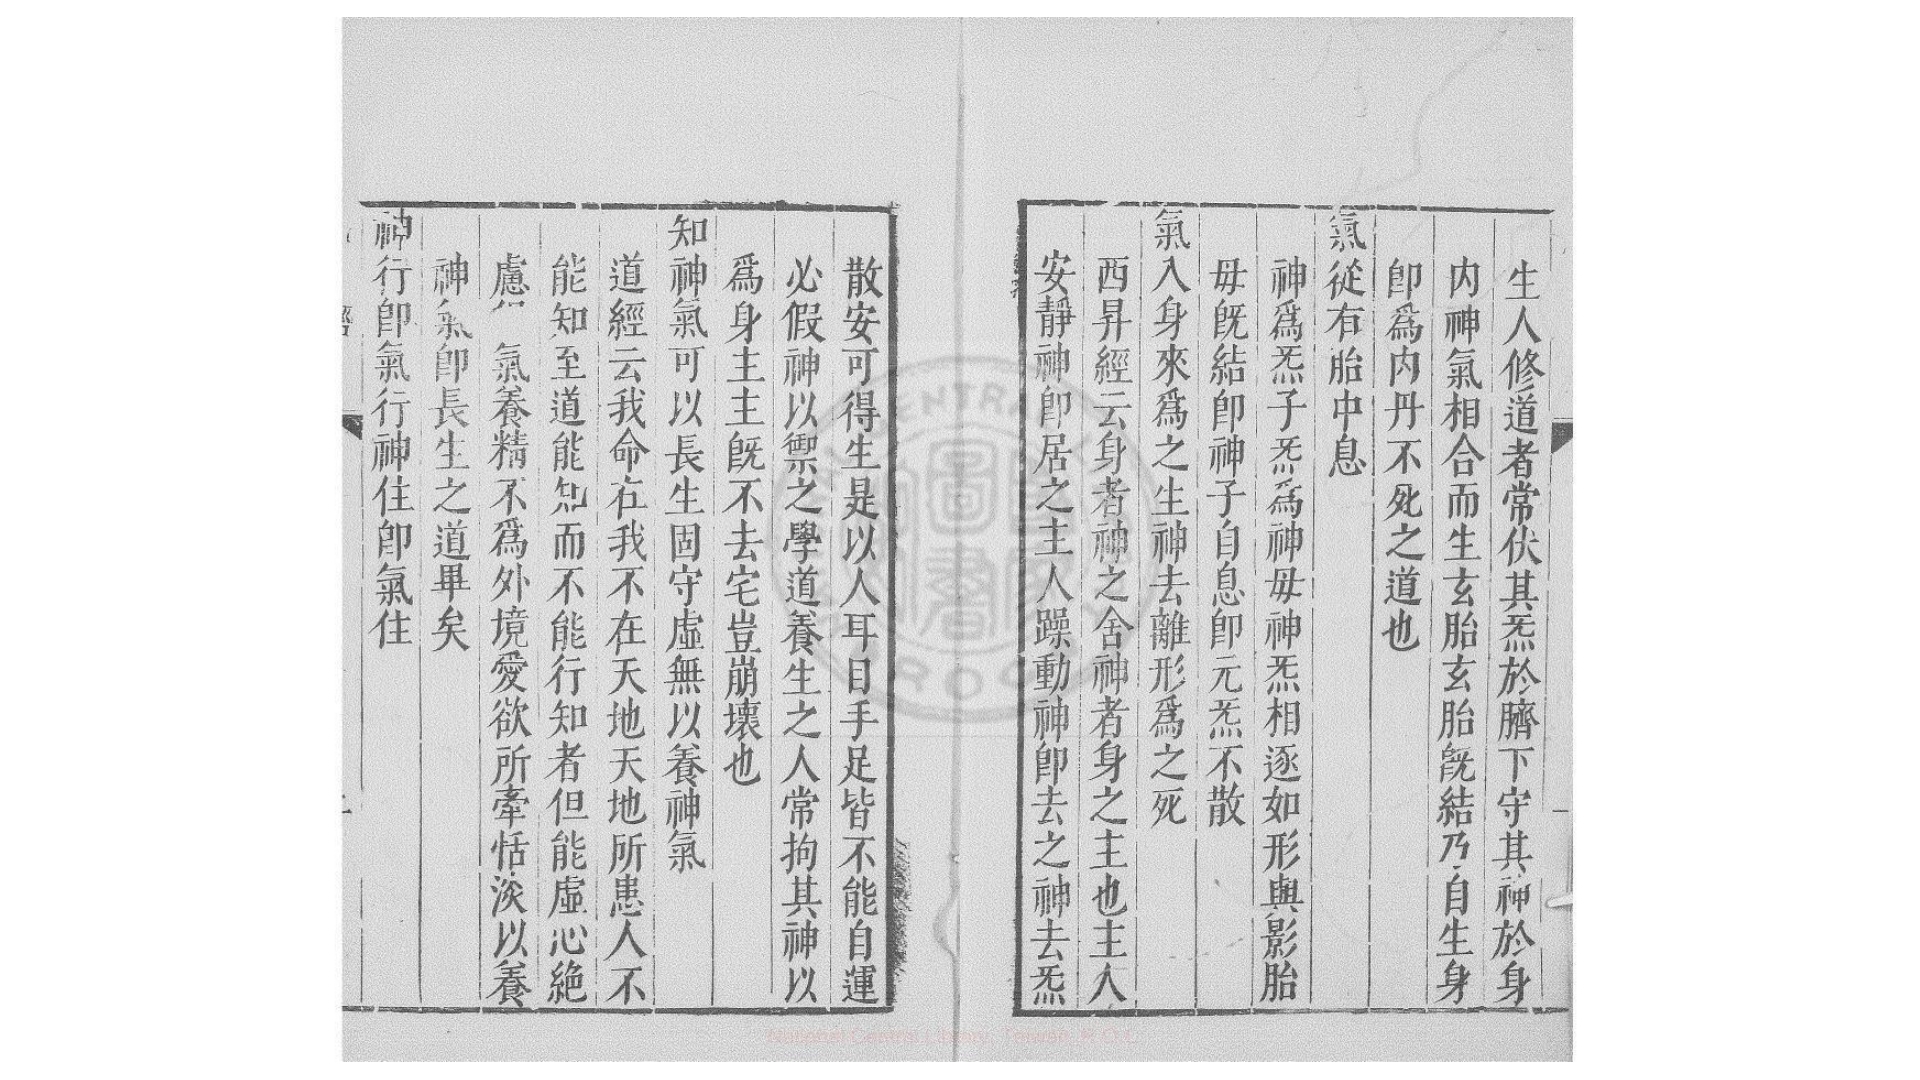 生人修道者常伏其炁於臍下守其神於身
内神氣相合而生玄胎玄胎旣結乃自生身
卽爲内丹不死之道也
氣從有胎中息
神爲炁子炁爲神母神炁相逐如形與影胎
母旣結卽神子自息卽元炁不散
氣入身來爲之生神去離形爲之死
西昇經云身者神之舍神者身之主也主人
安靜神卽居之主人躁動神卽去之神去炁
散安可得生是以人耳目手足皆不能自運
必假神以禦之學道養生之人常拘其神以
爲身主主旣不去宅豈崩壞也
知神氣可以長生固守虛無以養神氣
道經云我命在我不在天地天地所患人不
能知至道能知而不能行知者但能虛心絶
慮 氣養精不爲外境愛欲所牽恬淡以養
神氣卽長生之道畢矣
神行卽氣行神住卽氣住
國家圖書館
CENTRAL
R O C
National Central Library, Taiwan, R.O.C.